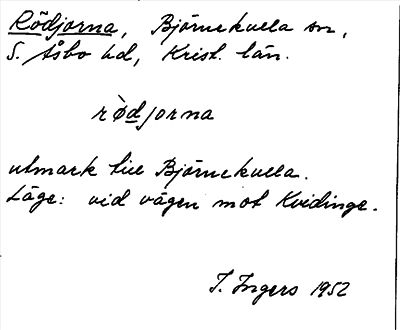 Rödjorna, Björnekulla sn,
S. Åsbo hd, Krist. län.
rø̀djorna
utmark till Björnekulla.
Läge: vid vägen mot Kvidinge.
I. Ingers 1952